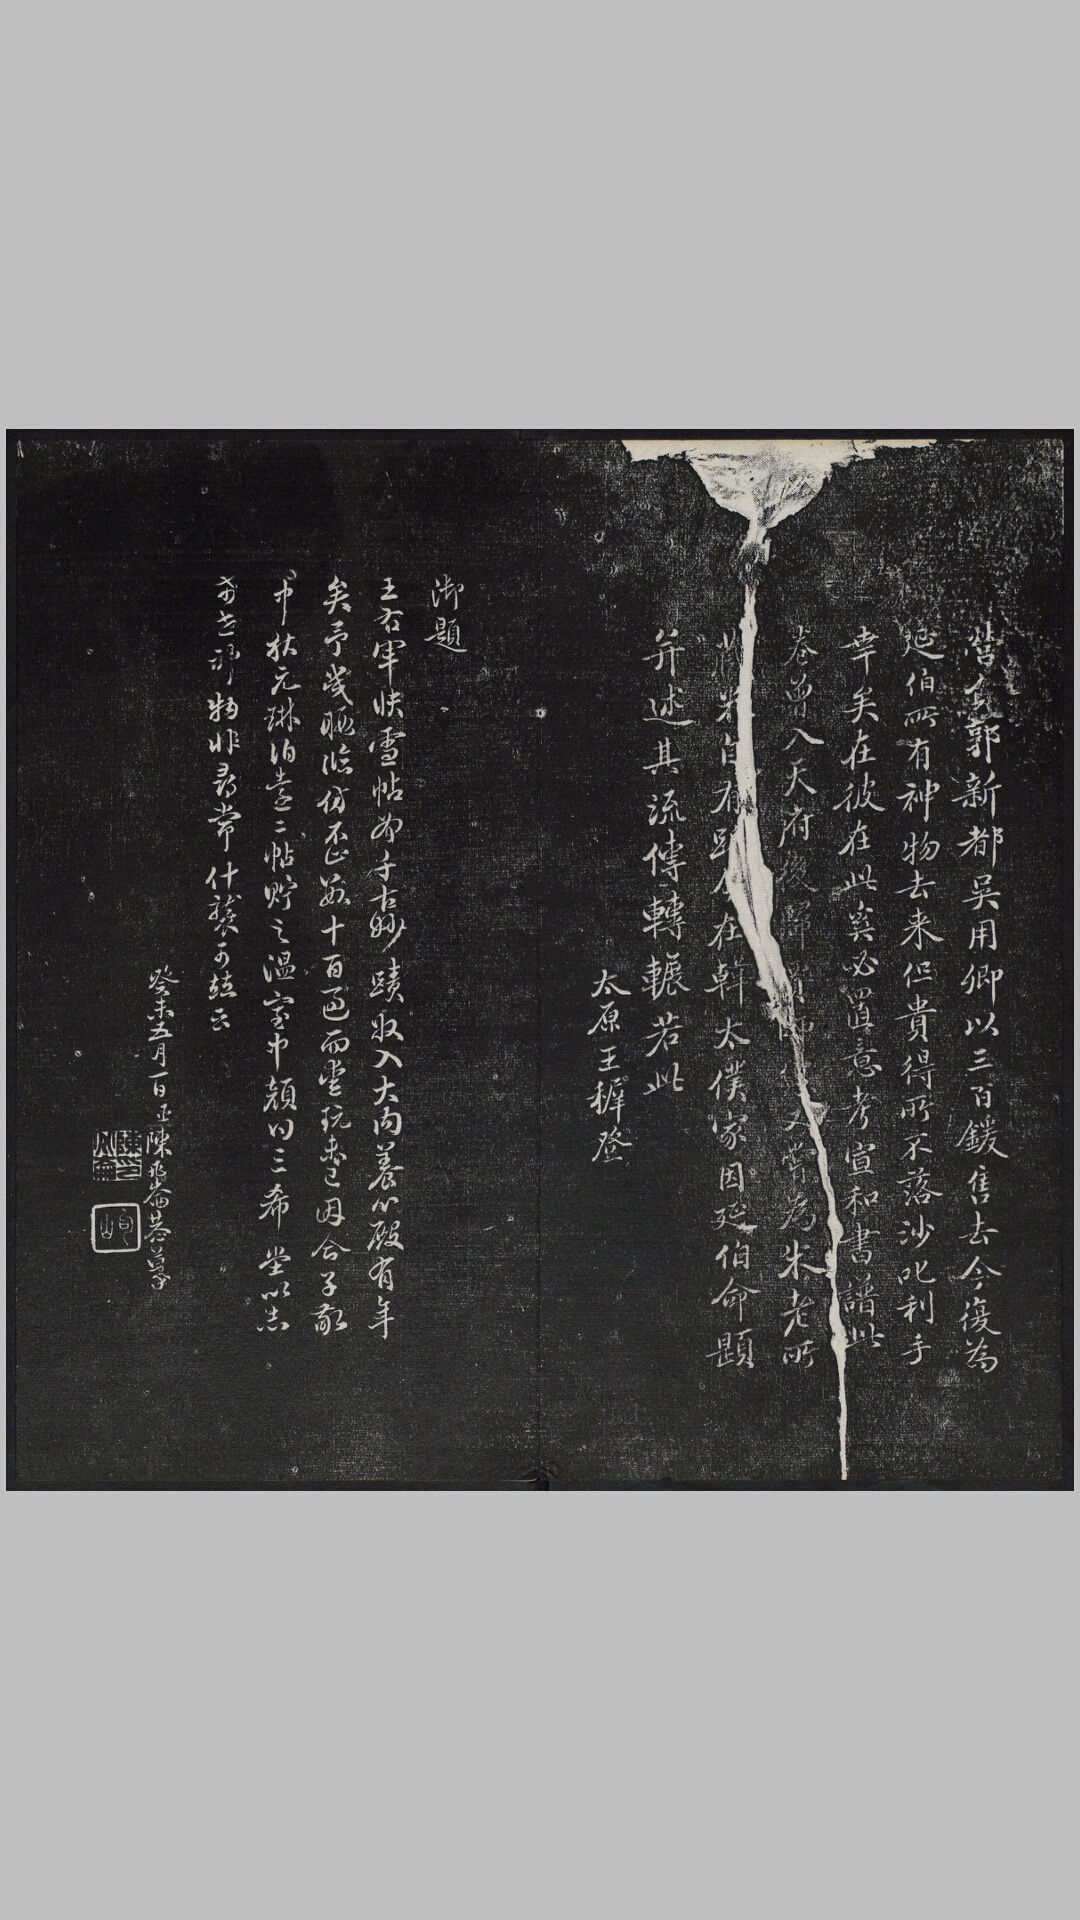 營室郭新都吳用卿以三百鍰售去今復為
延伯所有神物去来但貴得所不落沙叱利手
幸矣在彼在此奚必置意考宣和書譜此
卷曾入天府後歸賈師 又嘗為朱老所
藏米自有跋今在韓太僕家因延伯命題
并述其流傳轉輾若此
太原王穉登
御題
王右軍快雪帖為千古妙蹟收入大內養心殿有年
矣予幾暇臨仿不止數十百過而愛玩未已因合子敬
中秋元琳伯遠二帖貯之溫室中顏曰三希堂以志
希世神物非尋常什襲可竝云
癸未五月一日臣陳兆崙恭摹